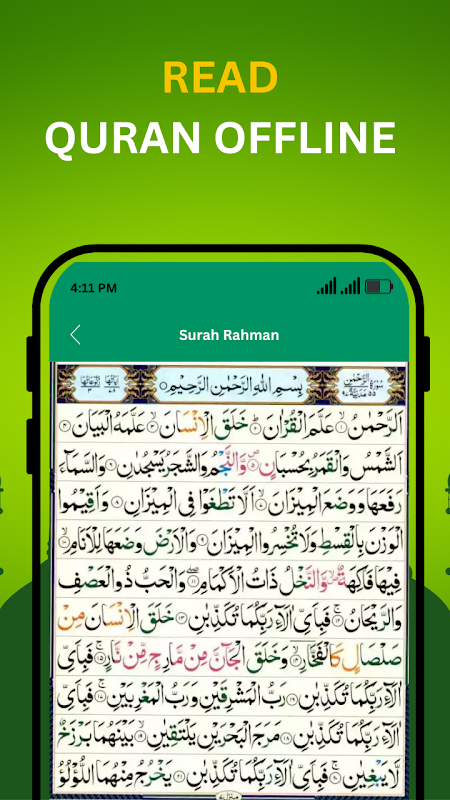 READ
QURAN OFFLINE
4:11 PM
Surah Rahman
سورة الرحمن
بِسْمِ اللهِ الرَّحْمٰنِ الرَّحِيْمِ
اَلرَّحْمٰنُ ۙ۱ عَلَّمَ الْقُرْاٰنَ ؕ۲ خَلَقَ الْاِنْسَانَ ۙ۳ عَلَّمَهُ الْبَيَانَ ۴
اَلشَّمْسُ وَالْقَمَرُ بِحُسْبَانٍ ۪۵ وَّالنَّجْمُ وَالشَّجَرُ يَسْجُدٰنِ ۶ وَالسَّمَآءَ
رَفَعَهَا وَوَضَعَ الْمِيْزَانَ ۙ۷ اَلَّا تَطْغَوْا فِى الْمِيْزَانِ ۸ وَاَقِيْمُوا
الْوَزْنَ بِالْقِسْطِ وَلَا تُخْسِرُوا الْمِيْزَانَ ۹ وَالْاَرْضَ وَضَعَهَا لِلْاَنَامِ ۙ۱۰
فِيْهَا فَاكِهَةٌ ۪ۙ وَّالنَّخْلُ ذَاتُ الْاَكْمَامِ ۖ۱۱ وَالْحَبُّ ذُو الْعَصْفِ
وَالرَّيْحَانُ ۚ۱۲ فَبِاَىِّ اٰلَآءِ رَبِّكُمَا تُكَذِّبٰنِ ۱۳ خَلَقَ الْاِنْسَانَ مِنْ
صَلْصَالٍ كَالْفَخَّارِ ۙ۱۴ وَخَلَقَ الْجَآنَّ مِنْ مَّارِجٍ مِّنْ نَّارٍ ۚ۱۵ فَبِاَىِّ
اٰلَآءِ رَبِّكُمَا تُكَذِّبٰنِ ۱۶ رَبُّ الْمَشْرِقَيْنِ وَرَبُّ الْمَغْرِبَيْنِ ۚ۱۷ فَبِاَىِّ
اٰلَآءِ رَبِّكُمَا تُكَذِّبٰنِ ۱۸ مَرَجَ الْبَحْرَيْنِ يَلْتَقِيٰنِ ۙ۱۹ بَيْنَهُمَا بَرْزَخٌ
لَّا يَبْغِيٰنِ ۚ۲۰ فَبِاَىِّ اٰلَآءِ رَبِّكُمَا تُكَذِّبٰنِ ۲۱ يَخْرُجُ مِنْهُمَا اللُّؤْلُؤُ